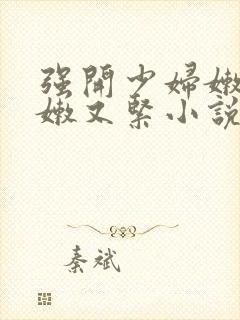 强開少婦嫩
嫩又緊小說
秦斌